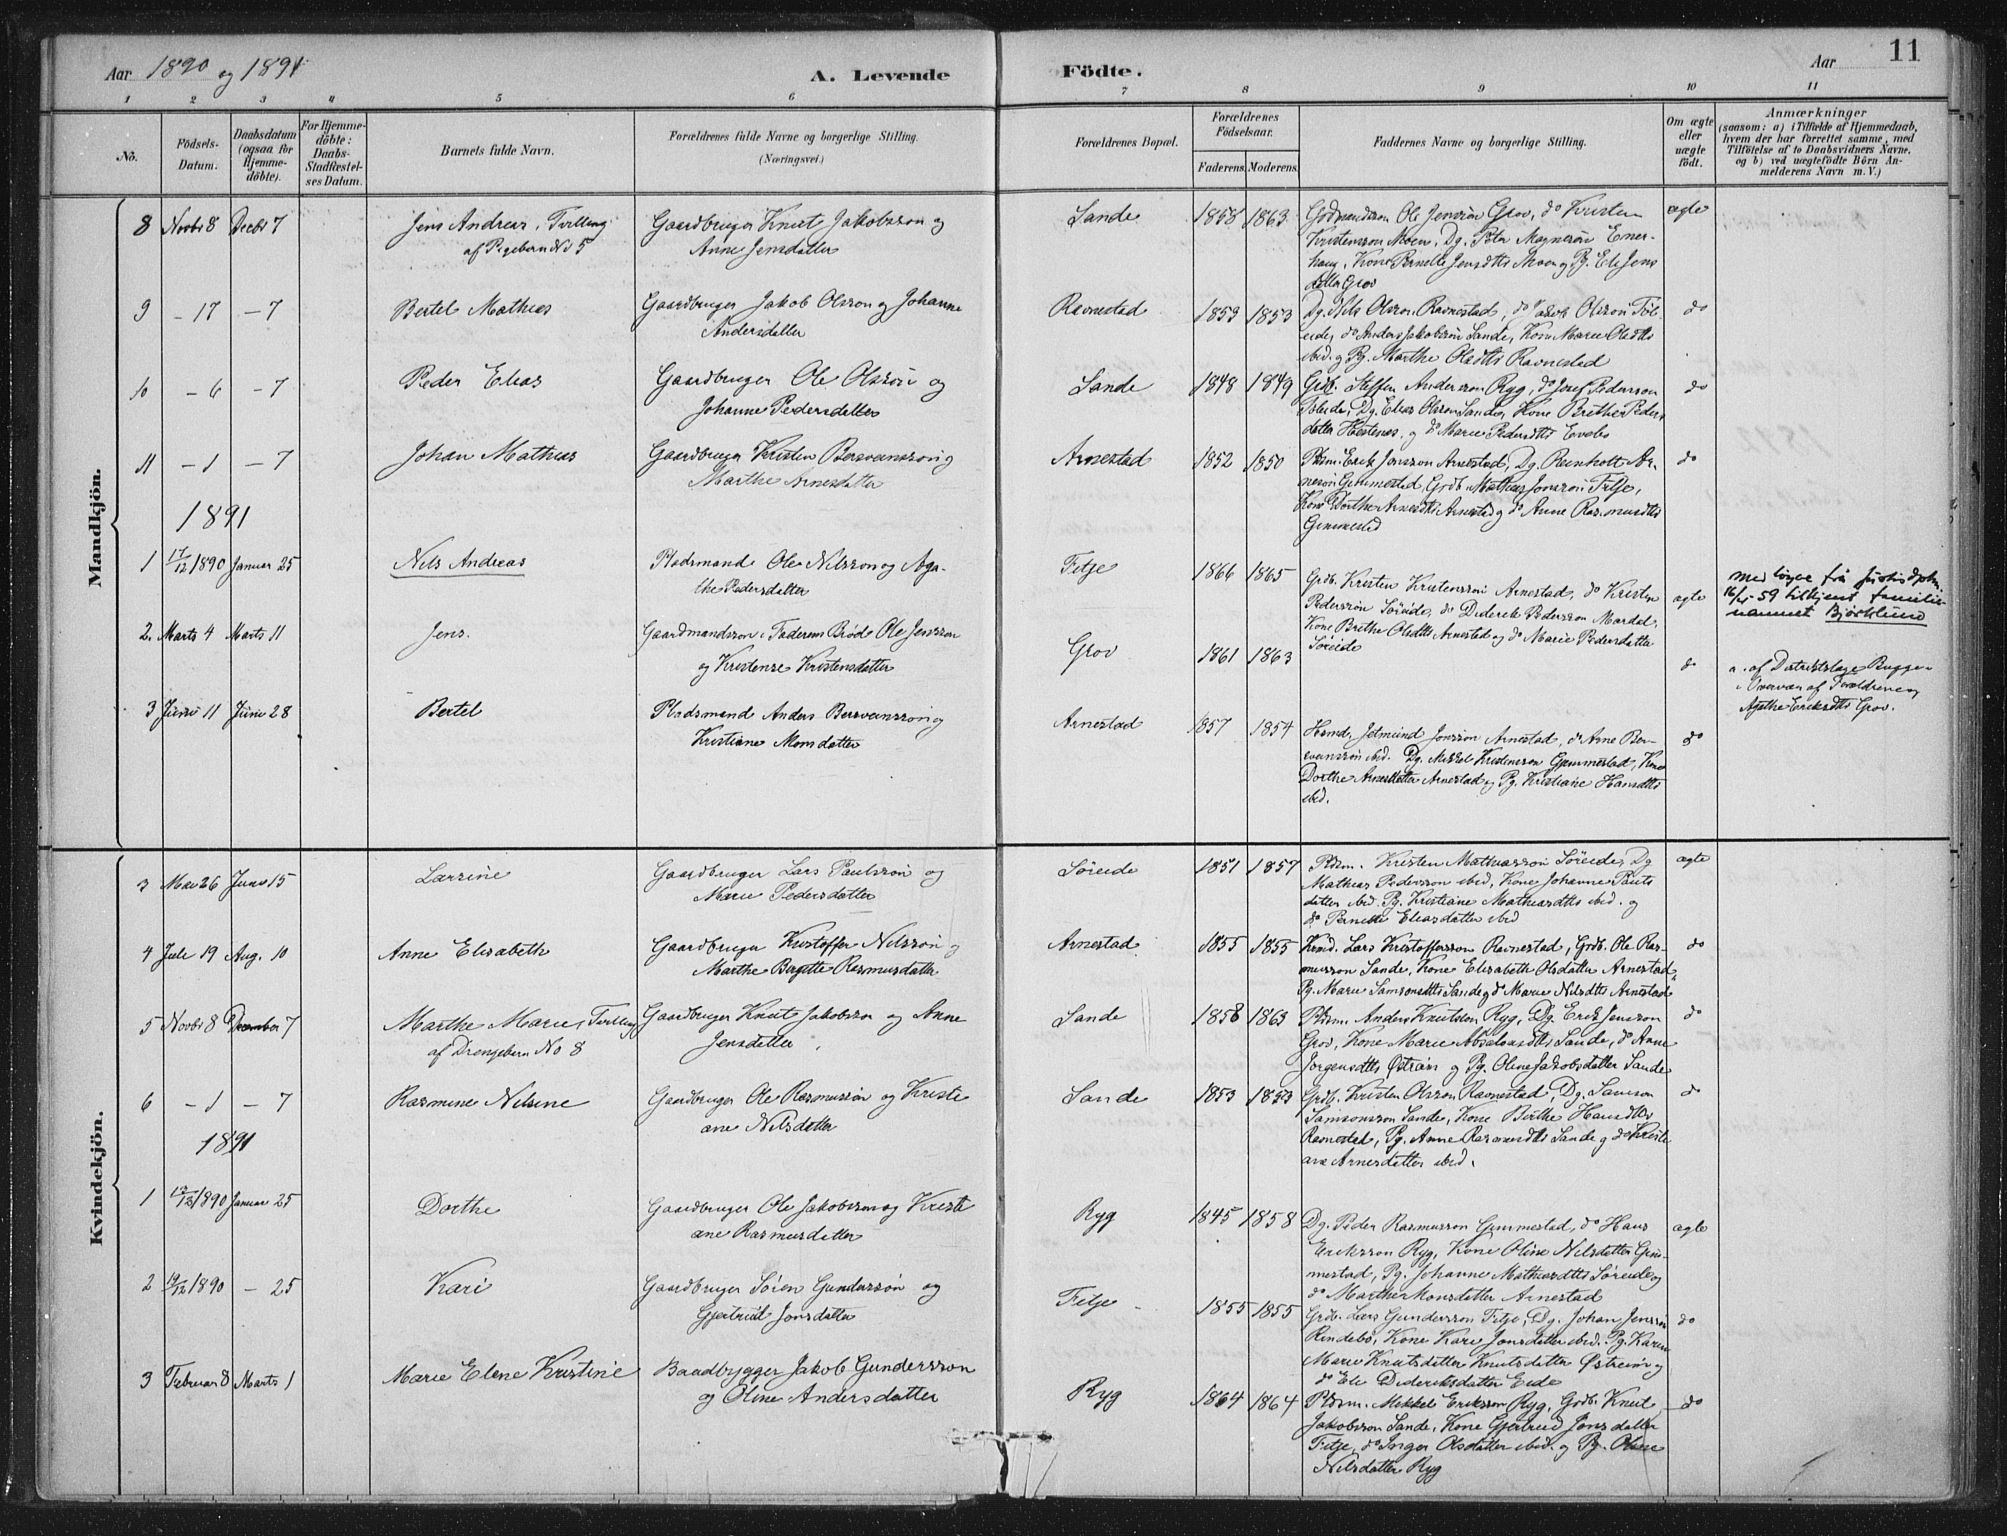 Aar 1890 og 1891
A. Levende Födte.
Aar
11
1 2 3 4 5 6 7 8 9 10 11
No.
Födsels-Datum.
Daabsdatum (ogsaa for Hjemme-döbte).
For Hjemme-döbte: Daabs-Stadfæstel-ses Datum.
Barnets fulde Navn.
Forældrenes fulde Navne og borgerlige Stilling.
(Næringsvei.)
Forældrenes Bopæl.
Forældrenes Födselsaar.
Faderens. Moderens.
Faddernes Navne og borgerlige Stilling.
Om ægte eller uægte födt.
Anmærkninger
(saasom: a) i Tilfælde af Hjemmedaab, hvem der har forrettet samme, med Tilföielse af to Daabsvidners Navne, og b) ved uægtefödte Börn An-melderens Navn m. V.)
Mandkjön.
8 Novbr 8 Decbr 7 Jens Andreas, Tvilling
af Pigebarn No 5
Gaardbruger Knut Jakobsson og
Anne Jensdatter
Sande 1858 1863
Gdmandssøn Ole Jenssøn Grov, do Kristen
Kristensson Moen, Dg. Peter Magnesøn Ener-
haug, Kone Pernelle Jensdtts Moen og Pg. Eli Jens
datter Grov
ægte
9 - 17 - 7 Bertel Mathias
Gaardbruger Jakob Olsson og Johanne
Andersdatter
Ravnestad 1859 1853
Dg. Nils Olsson Ravnestad, do Jakob Olsson Töl-
eide, do Anders Jakobsson Sande, Kone Marie Olsdtts
ibid. og Pg. Marthe Olsdtts Ravnestad
do
10 - 6 - 7 Peder Elias
Gaardbruger Ole Olssön og
Johanne Pedersdatter
Sande 1848 1849
Grdb. Steffen Andersson Ryg, do Josef Pedersson
Töleide, Dg. Elias Olsson Sande, Kone Brithe Peders
datter Hestenes, og do Marie Pedersdtts Evebø
do
11 - 1 - 7 Johan Mathias
Gaardbruger Kristen Bersvenssön og
Marthe Arnesdatter
Arnestad 1852 1850
Pldsm. Erik Jonsson Arnestad, Dg. Reinholt Ar-
nesøn Gimmestad, Grdb. Mathias Jonssøn Fitje,
Kone Dorthe Arnesdtts Arnestad og do Anne Rasmusdtts
Gimmestad
do
1891
1 17/12 1890 Januar 25 Nils Andreas
Pladsmand Ole Nilsson og Aga-
the Pedersdatter
Fitje 1866 1865
Grdb. Kristen Kristenssön Arnestad, do Kristen
Pederssøn Søreide, do Diderik Pedersson Mardal,
Kone Brithe Olsdtts Arnestad og do Marie Pedersdatter
Søreide
ægte
med løyve frå Justisdptm.
16/4-59 tilkjent familie-
namnet Bjørklund
2. Marts 4 Marts 11 Jens
Gaardmandssøn i Faderens Bröd Ole Jensson
og Kristense Kristensdatter
Grov 1861 1863
do
a. af Distriktslæge Bugge
i Overvær af Forældrene og
Agathe Eriksdtts Grov.
3 Juni 11 Juni 28 Bertel
Pladsmand Anders Bersvenssön og
Kristiane Monsdatter
Arnestad 1857 1854
Hsmd. Jetmund Jonsson Arnestad, do Arne Ber-
svenssön ibid. Dg. Mikkel Kristensson Gimmestad, Kone
Dorthe Arnesdatter Arnestad og Pg. Kristiane Hansdtts
ibid.
do
Kvindekjön.
3 Mai 26 Juni 15 Larsine
Gaardbruger Lars Paulssön og
Marie Pedersdatter
Söreide 1851 1857
Pldsm. Kristen Mathiassön Söreide, Dg
Mathias Pedersson ibid, Kone Johanne Pouls
datter ibid. Pg. Kristiane Mathiasdtts ibid. og
do Pernille Eliasdatter ibid
ægte
4 Juli 19 Aug. 10 Anne Elisabeth
Gaardbruger Kristoffer Nilssön og
Marthe Birgitte Rasmusdatter
Arnestad 1855 1855
Kmd. Lars Kristoffersson Ravnestad, Grdb. Ole Ras-
musson Sande, Kone Elisabeth Olsdatter Arnestad,
Pg. Marie Samsonsdtts Sande og do Marie Nilsdtts Arnestad
do
5 Novbr 8 December 7 Marthe Marie, Tvilling
af Drengebarn No 8
Gaardbruger Knut Jakobsson og Anne
Jensdatter
Sande 1858 1863
Pldsm. Anders Knutsson Ryg, Dg. Erik Jensson
Grov, Kone Marie Absalonsdtts Sande, do Anne
Jørgensdtts Østrem og Pg. Oline Jakobsdatter Sande
do
6 - 1 - 7 Rasmine Nilsine
Gaardbruger Ole Rasmussön og Kristi
ane Nilsdatter
Sande 1853 1853
Grdb. Kristen Olsson Ravnestad, Dg. Samson
Samsonsson Sande, Kone Birthe Hansdtts
Ravnestad, Pg. Anne Rasmusdtts Sande og do Kristi
ane Arnesdatter ibid.
do
1891
1 13/12 1890 Januar 25 Dorthe
Gaardbruger Ole Jakobsson og Kristi
ane Rasmusdatter
Ryg 1845 1858
Dg. Peder Rasmusson Gimmestad, do Hans
Eriksson Ryg, Kone Oline Nilsdatter Gim-
mestad, Pg. Johanne Mathiasdtts Söreide og
do Marthe Monsdatter Arnestad
ægte
2 19/12 1890 - 25 Kari
Gaardbruger Sören Gunderssön og
Gjertrud Jonsdatter
Fitje 1855 1855
Grdb. Lars Gundersson Fitje, Dg. Johan Jenssøn
Rindebö, Kone Kari Jonsdatter ibid. Pg. Karen
Marie Knutsdatter Knutsdatter Østrem og
do Eli Dideriksdatter Eide
do
3 Februar 8 Marts 1 Marie Elene Kristine
Baadbygger Jakob Gundersson
og Oline Andersdatter
Ryg 1864 1864
Pldsm. Mikkel Eriksson Ryg, Grdb. Knut
Jakobsson Sande, Kone Gjertrud Jonsdatter
Fitje, do Inger Olsdatter ibid. og Pg. Oline
Nilsdatter Ryg
do